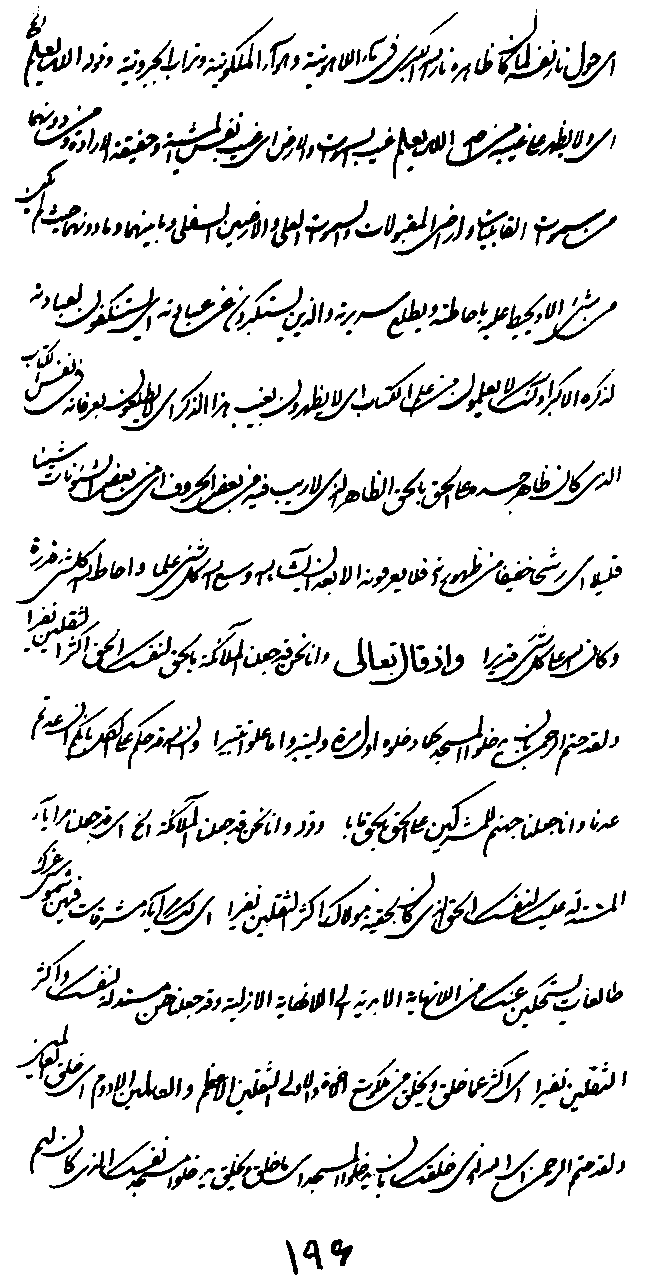 ای حول نار نفسه التی کان ظاهره نار الله الکبری فی ماء اللاهوتیة و هواء الملکوتیة و تراب الجبروتیة وقود الله یعلم
ای و لا یظهر ما غیب من الله یعلم غیب السموات والارض ای غیب نفس المشیة و حقیقة الارادة و من دونهما
من سموات القابلیات و ارض المقبولات والسموات العلی والارضین السفلی و ما بینهما و ما دونهما حیث لم یکن
من شئ الا و یحیط علمه باحاطته و یطلع سریرته والذین یستکبرون عن عبادته ای یستنکفون لعبادته
لذکره الاکبر اولئک لا یعلمون من علم الکتاب ای لا یظهرون بغیب هذا الذکر ای لا یطیعون بعرفانه فی نفس الکتاب
الذی کان ظاهر جسده علی الحق بالحق الظاهر الذی لا ریب فیه من بعض الحروف ای من بعض الشئونات شیئا
قلیلا ای رشحا خفیفا من ظهوره فلا یعرفونه الا بعد ان شاء الله وسع الله کل شئ علما و احاط الله کلشئ قدرة
و کان الله علی کل شئ قدیرا واذ قال تعالی وانا نحن قد جعلنا الملائکة بالحق لنفسک الحق اکثر الثقلین نفیرا
ولقد حتم الرحمن بان یدخلوا المسجد کما دخلوه اول مرة ولیتبروا ما علوا تتبیرا وان الله قد حکم علی اهل بانکم ان عدتم
عدنا وانا جعلنا جهنم للمشرکین علی الحق بالحق مآبا وانا نحن قد جعلنا الملائکة الخ ای قد جعلنا مرایاء
المستدلة علیک لنفسک الحق الذی کان بحقیة مولاک اکثر الثقلین نفیرا ای مشرقات فیهن شموس عزک
طالعات یستحکین عنک من اللانهایة الابدیة الی اللانهایة الازلیة وقد جعلناهن مستدلة لنفسک و اکثر
الثقلین نفیرا ای اکثر مما خلق ویخلق من ملکوت والاولی الثقلین الاعظم والعالمین الادوم ای خلق العالمین
ولقد حتم الرحمن ای الذی خلقک بان یدخلوا المسجد ای ما خلق ویخلق یدخلوا مسجد نفسک الذی کان لهم
۱۹۶